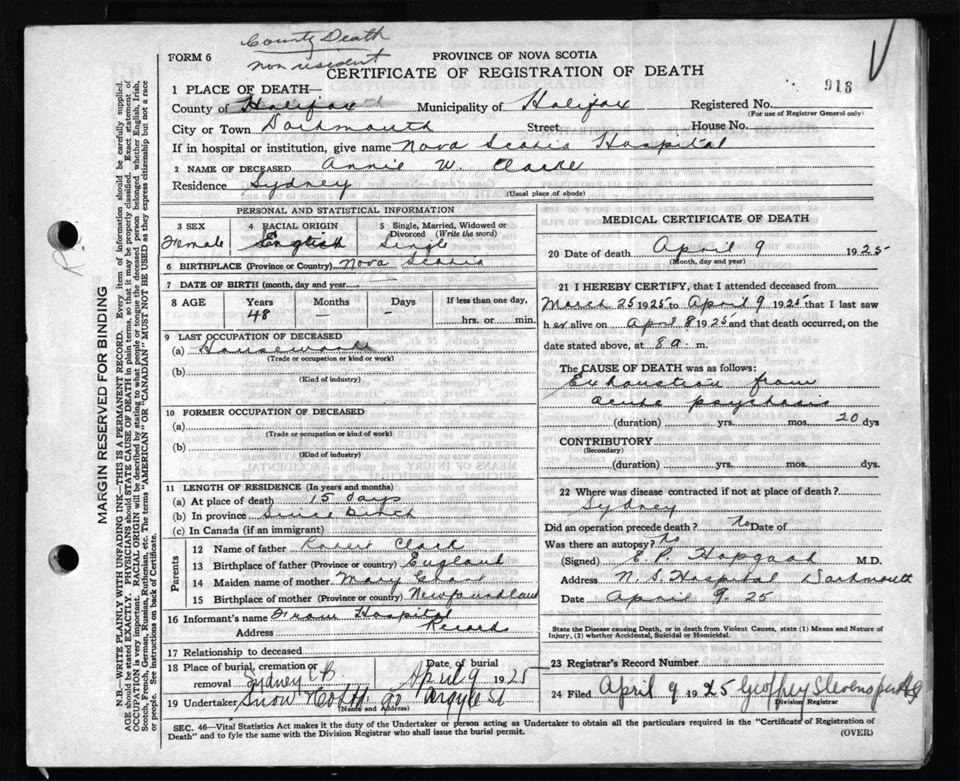 County Death
non resident
FORM 6
PROVINCE OF NOVA SCOTIA
CERTIFICATE OF REGISTRATION OF DEATH
1 PLACE OF DEATH—
918
County of Halifax Municipality of Halifax Registered No.
(For use of Registrar General only)
City or Town Dartmouth Street House No.
If in hospital or institution, give name Nova Scotia Hospital
2 NAME OF DECEASED Annie W. Clarke
Residence Sydney
(Usual place of abode)
PERSONAL AND STATISTICAL INFORMATION
3 SEX
Female
4 RACIAL ORIGIN
English
5 Single, Married, Widowed or Divorced (Write the word)
Single
6 BIRTHPLACE (Province or Country) Nova Scotia
7 DATE OF BIRTH (month, day and year)
8 AGE Years Months Days If less than one day,
48 — - hrs. or min.
9 LAST OCCUPATION OF DECEASED
(a) Housework
(Trade or occupation or kind or work)
(b)
(Kind of industry)
10 FORMER OCCUPATION OF DECEASED
(a)
(Trade or occupation or kind of work)
(b)
(Kind of industry)
11 LENGTH OF RESIDENCE (In years and months)
(a) At place of death 15 days
(b) In province Since Birth
(c) In Canada (if an immigrant)
Parents
12 Name of father Robert Clark
13 Birthplace of father (Province or country) England
14 Maiden name of mother Mary
15 Birthplace of mother (Province or country) Newfoundland
16 Informant's name From Hospital
Address Records
17 Relationship to deceased
18 Place of burial, cremation or Date of burial
removal Sydney C B April 9 1925
19 Undertaker Snow & Co Ltd. 90 Argyle St
(Name and Address)
MEDICAL CERTIFICATE OF DEATH
20 Date of death April 9 1925
(Month, day and year)
21 I HEREBY CERTIFY, that I attended deceased from
March 25 1925 to April 9 1925 that I last saw
her alive on April 8 1925 and that death occurred, on
date stated above, at 8 a. m.
The CAUSE OF DEATH was as follows:
Exhaustion from
acute psychosis
(duration) yrs. mos. 20 dys
CONTRIBUTORY
(Secondary)
(duration) yrs. mos. dys.
22 Where was disease contracted if not at place of death?
Sydney
Did an operation precede death? No Date of
Was there an autopsy? No
(Signed) E. P. Hopgood M.D.
Address N. S. Hospital Dartmouth
Date April 9. 25
State the Disease causing Death, or in death from Violent Causes, state (1) Means and Nature of
Injury, (2) whether Accidental, Suicidal or Homicidal.
23 Registrar's Record Number
24 Filed April 9 1925 Geoffrey Stevens
Division Registrar
SEC. 46—Vital Statistics Act makes it the duty of the Undertaker or person acting as Undertaker to obtain all the particulars required in the "Certificate of Registration of
Death" and to fyle the same with the Division Registrar who shall issue the burial permit.
(OVER)
MARGIN RESERVED FOR BINDING
N.B.—WRITE PLAINLY WITH UNFADING INK—THIS IS A PERMANENT RECORD. Every item of information should be carefully supplied.
AGE should be stated EXACTLY. PHYSICIANS should STATE CAUSE OF DEATH in plain terms, so that it may be properly classified. Exact statement of
OCCUPATION is very important. RACIAL ORIGIN will be described by stating to what people or tongue the deceased person belonged whether English, Irish,
Scotch, French, German, Russian, Ruthenian, etc. The terms "AMERICAN" or "CANADIAN" MUST NOT BE USED as they express citizenship but not a race
or people. See instructions on back of Certificate.